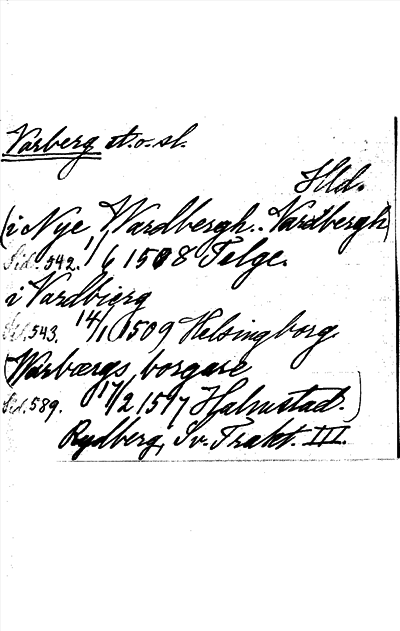 Varberg st. o. sl.
Hld.
(i Nye Wardbergh. Vardbergh)
Sid. 542. 1/6 1508 Telge.
i Vardbierg
Sid. 543. 14/1 1509 Helsingborg.
(Warbærgs borgare
Sid. 589. 17/2 1517 Halmstad.)
Rydberg, Sv. Trakt. III.